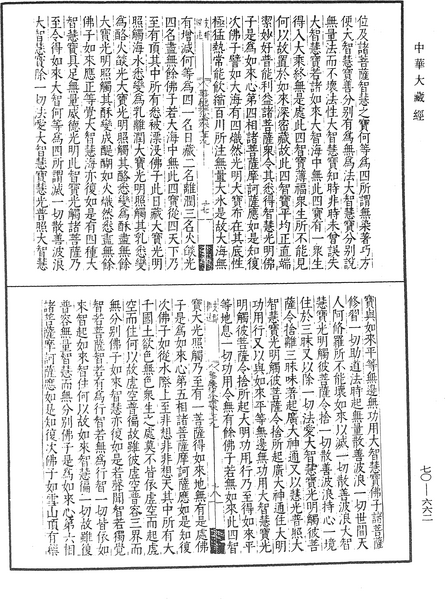 中華大藏經
位及諸菩薩智慧之寶何等為四所謂無染著巧方
便大智慧寶善分別有為無為法大智慧寶分別說
無量法而不壞法性大智慧寶知時非時未曾誤失
大智慧寶若諸如來大智海中無此四寶有一眾生
得入大乘終無是處此四智寶薄福眾生所不能見
何以故置於如來深密藏故此四智寶平均正直端
潔妙好普能利益諸菩薩眾令其悉得智慧光明佛
子是為如來心第四相諸菩薩摩訶薩應如是知復
次佛子譬如大海有四熾然光明大寶布在其底性
極猛熱常能飲縮百川所注無量大水是故大海無
有增減何等為四一名日藏二名離潤三名火焰光
四名盡無餘佛子若大海中無此四寶從四天下乃
至有頂其中所有悉被漂沒佛子此日藏大寶光明
照觸海水悉變為乳離潤大寶光明照觸其乳悉變
為酪火焰光大寶光明照觸其酪悉變為酥盡無餘
大寶光明照觸其酥變成醍醐如火熾然悉盡無餘
佛子如來應正等覺大智慧海亦復如是有四種大
智慧寶具足無量威德光明此智寶光觸諸菩薩乃
至令得如來大智何等為四所謂滅一切散善波浪
大智慧寶除一切法愛大智慧寶慧光普照大智慧
寶與如來平等無邊無功用大智慧寶佛子諸菩薩
修習一切助道法時起無量散善波浪一切世間天
人阿修羅所不能壞如來以滅一切散善波浪大智
慧寶光明觸彼菩薩令捨一切散善波浪持心一境
住於三昧又以除一切法愛大智慧寶光明觸彼菩
薩令捨離三昧味著起廣大神通又以慧光普照大
智慧寶光明觸彼菩薩令捨所起廣大神通住大明
功用行又以與如來平等無邊無功用大智慧寶光
明觸彼菩薩令捨所起大明功用行乃至得如來平
等地息一切功用令無有餘佛子若無如來此四智
寶大光照觸乃至有一菩薩得如來地無有是處佛
子是為如來心第五相諸菩薩摩訶薩應如是知復
次佛子如從水際上至非想非非想天其中所有大
千國土欲色無色眾生之處莫不皆依虛空而起虛
空而住何以故虛空普遍故雖彼虛空普容三界而
無分別佛子如來智慧亦復如是若聲聞智若獨覺
智若菩薩智若有為行智若無為行智一切皆依如
來智起如來智住何以故如來智慧遍一切故雖復
普容無量智慧而無分別佛子是為如來心第六相
諸菩薩摩訶薩應如是知復次佛子如雪山頂有藥
七〇—六六二